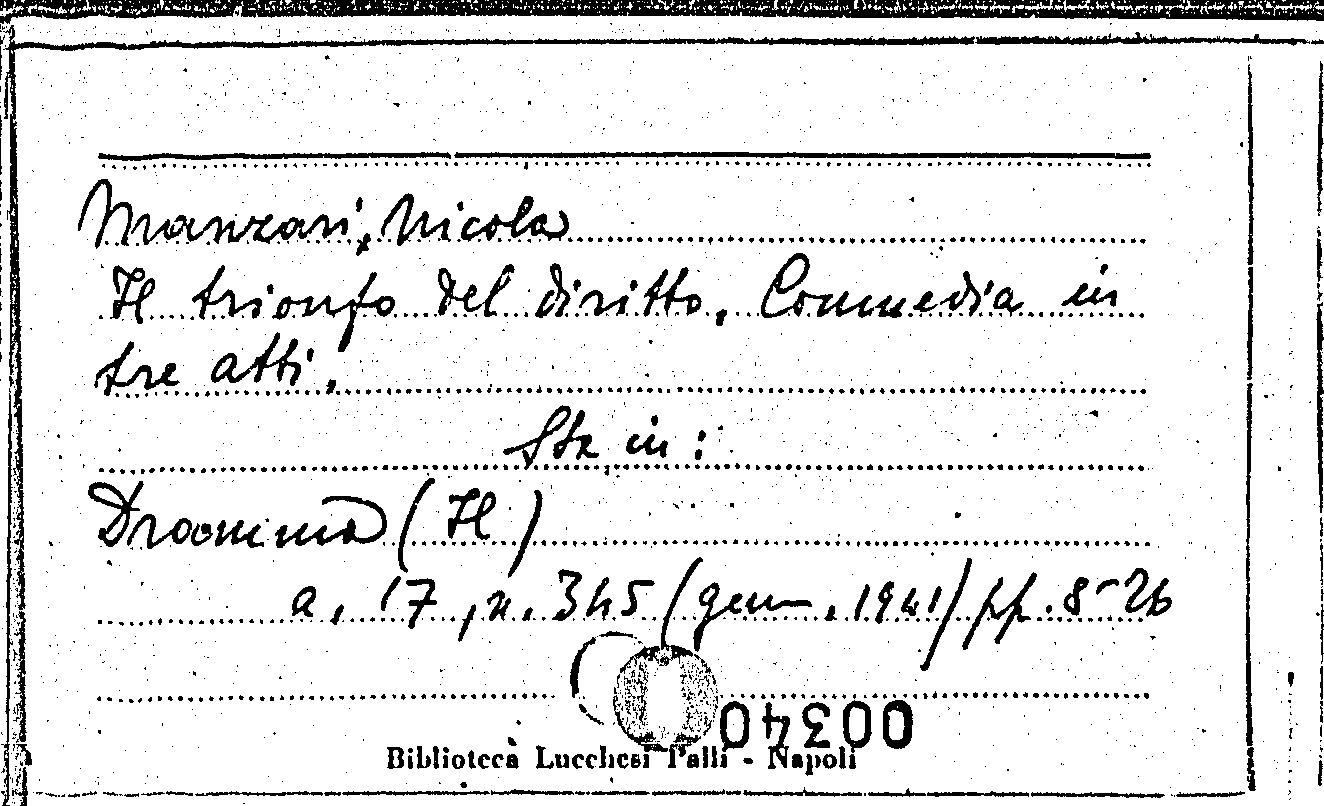 Manzari, Nicola
Il trionfo del diritto. Commedia in
tre atti.
Sta in:
Dramma (Il)
a. 17, n. 345 (genn. 1941) pp. 8-26
00340
Biblioteca Lucchesi Palli - Napoli